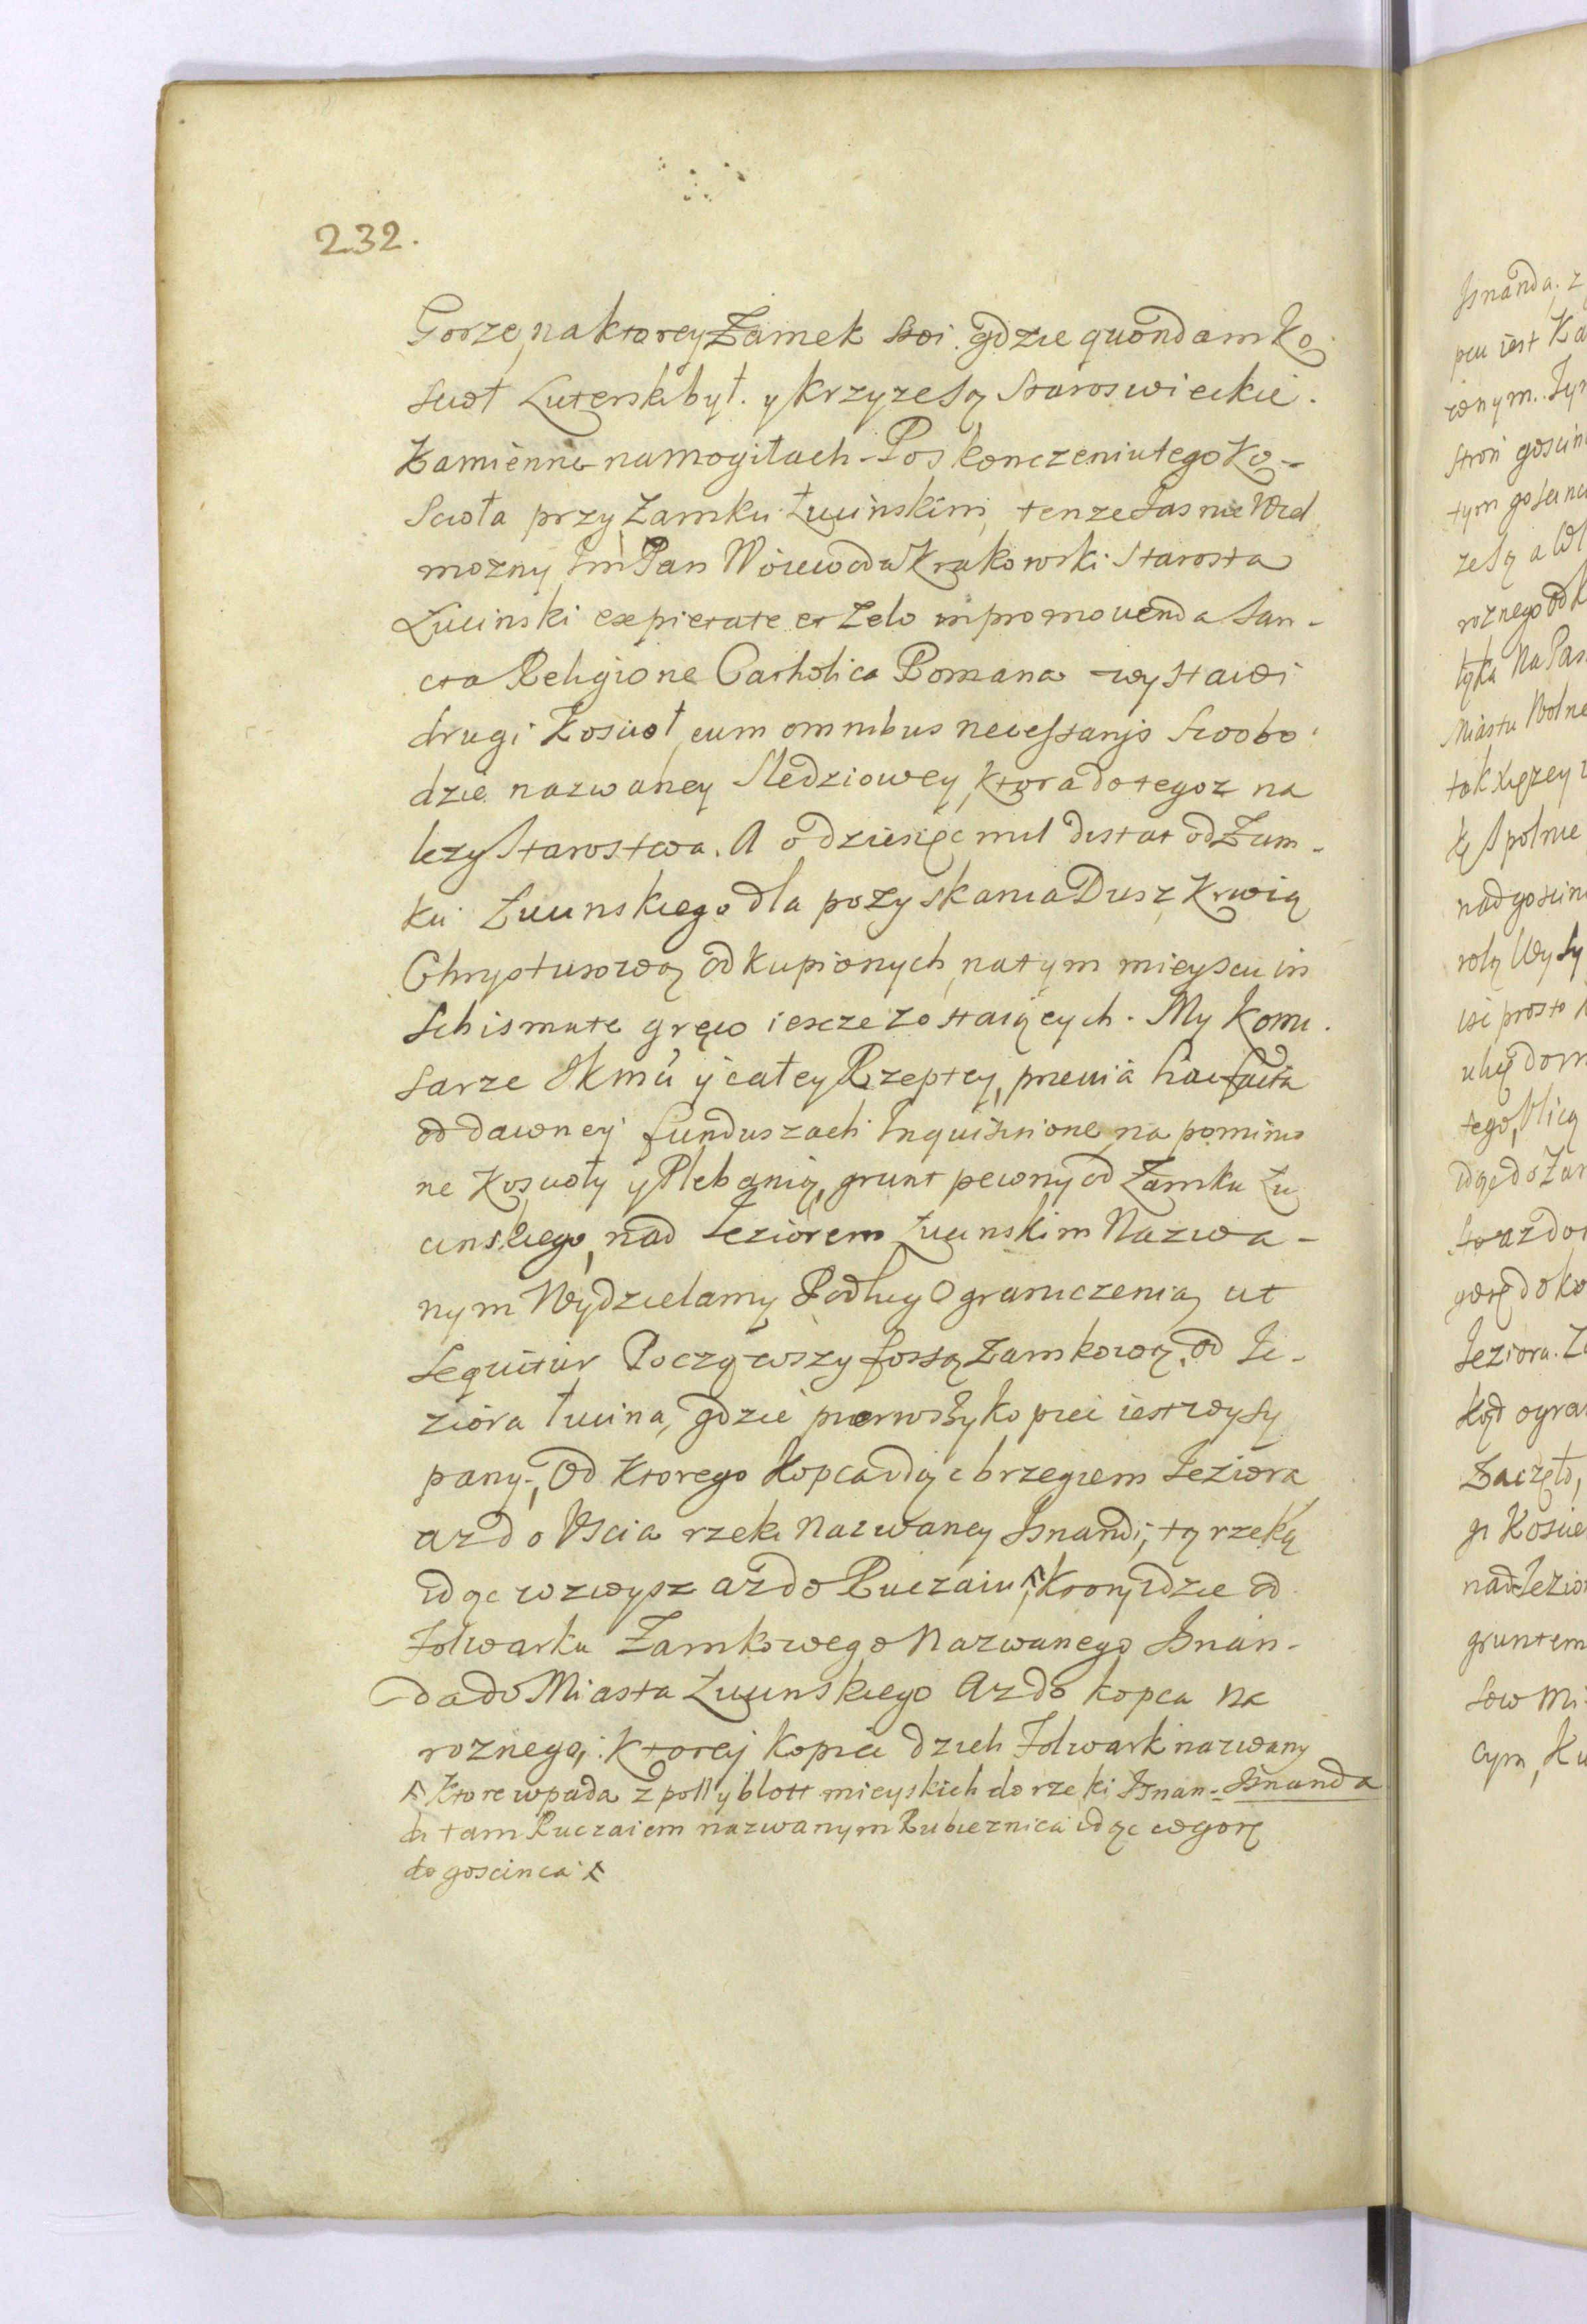 232.
Gorze, na ktorey Zamek stoi. gdzie quondam Ko
scioł Luterski był. y krzyze są staroswieckie.
Kamienne na mogiłach. Po skonczeniu tego Ko-
scioła przy Zamku Łucinskim, tenze Jasnie Wiel
mozny Im Pan Woiewoda Krakowski Starosta
Łucinski ex pietate et Zelo in promovenda San-
cta Religione Catholica Romana wystawi
drugi Koscioł, cum omnibus necessarijs Swobo
dzie nazwaney Sledziowey, ktora do tegoz na
lezy Starostwa. A o dziesięc mil distat od Zam-
ku Łucinskiego dla pozyskania Dusz Krwią
Chrystusową odkupionych, na tym mieyscu in
Schismate gręco iescze zostaiących. My Komi.
sarze JKmci y całey Rzeptey, praevia
od dawney funduszach Inquisitione, na pominio
ne Kościoły y Plebanią, grunt pewny od Zamku Łu
cinskiego, nad Jeziorem Łucinskim Nazwa-
nym Wydzielamy Podług Ograniczenia, ut
sequitur Począwszy fossą Zamkową, od Je-
ziora Łucina, gdzie pierwszy kopiec iest wysy
pany, Od Ktorego Kopca idąc brzegiem Jeziora
az do Uscia rzeki Nazwaney Isnandi, tą rzeką
idąc wzwysz az do Ruczaiu, Ktory idzie od
Folwarku Zamkowego Nazwanego Isnan-
da do Miasta Łucinskiego Az do kopca na
roznego, Ktorej kopiec dzieli Folwark nazwany
Ktore wpada z poll y błott mieyskich do rzeki Isnan- Isnanda
da tam Ruczaiem nazwanym Rubieznica idąc wgorę
do goscinca
Isnanda. z
pcu iest Ka
tym goscinca
roznego od k
tyka Na Pas
Miastu Wolne
nad goscin
isc prosto
idąc do Zam
Jeziora. Z
Zaczęło,
nad Jezior
gruntem